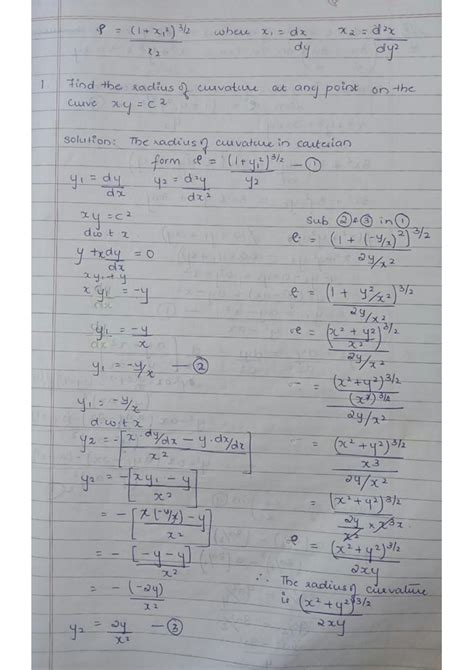 ρ = (1+x₁²)^3/2 / x₂ where x₁ = dx/dy x₂ = d²x/dy²
1 Find the radius of curvature at any point on the
curve xy = c²
solution: The radius of curvature in carterian
form ρ = (1+y₁²)^3/2 / y₂ — ①
y₁ = dy/dx y₂ = d²y/dx²
xy = c²
d w t x
y + xdy/dx = 0
xy₁ + y
x y₁ = -y
y₁ = -y/x
y₁ = -y/x — ②
y₁ = -y/x
d w t x
y₂ = -[x dy/dx - y dx/dx / x²]
y₂ = -[xy₁ - y / x²]
= -[x(-y/x) - y / x²]
= -[-y - y / x²]
= -(-2y) / x²
y₂ = 2y / x² — ③
Sub ② & ③ in ①
ρ = (1 + (-y/x)²)^3/2 / 2y/x²
ρ = (1 + y²/x²)^3/2 / 2y/x²
ρ = (x² + y² / x²)^3/2 / 2y/x²
= (x² + y²)^3/2 / (x²)^3/2 / 2y/x²
= (x² + y²)^3/2 / x³ / 2y/x²
= (x² + y²)^3/2 / 2y/x² × x³
ρ = (x² + y²)^3/2 / 2xy
∴ The radius of curvature
is (x² + y²)^3/2 / 2xy